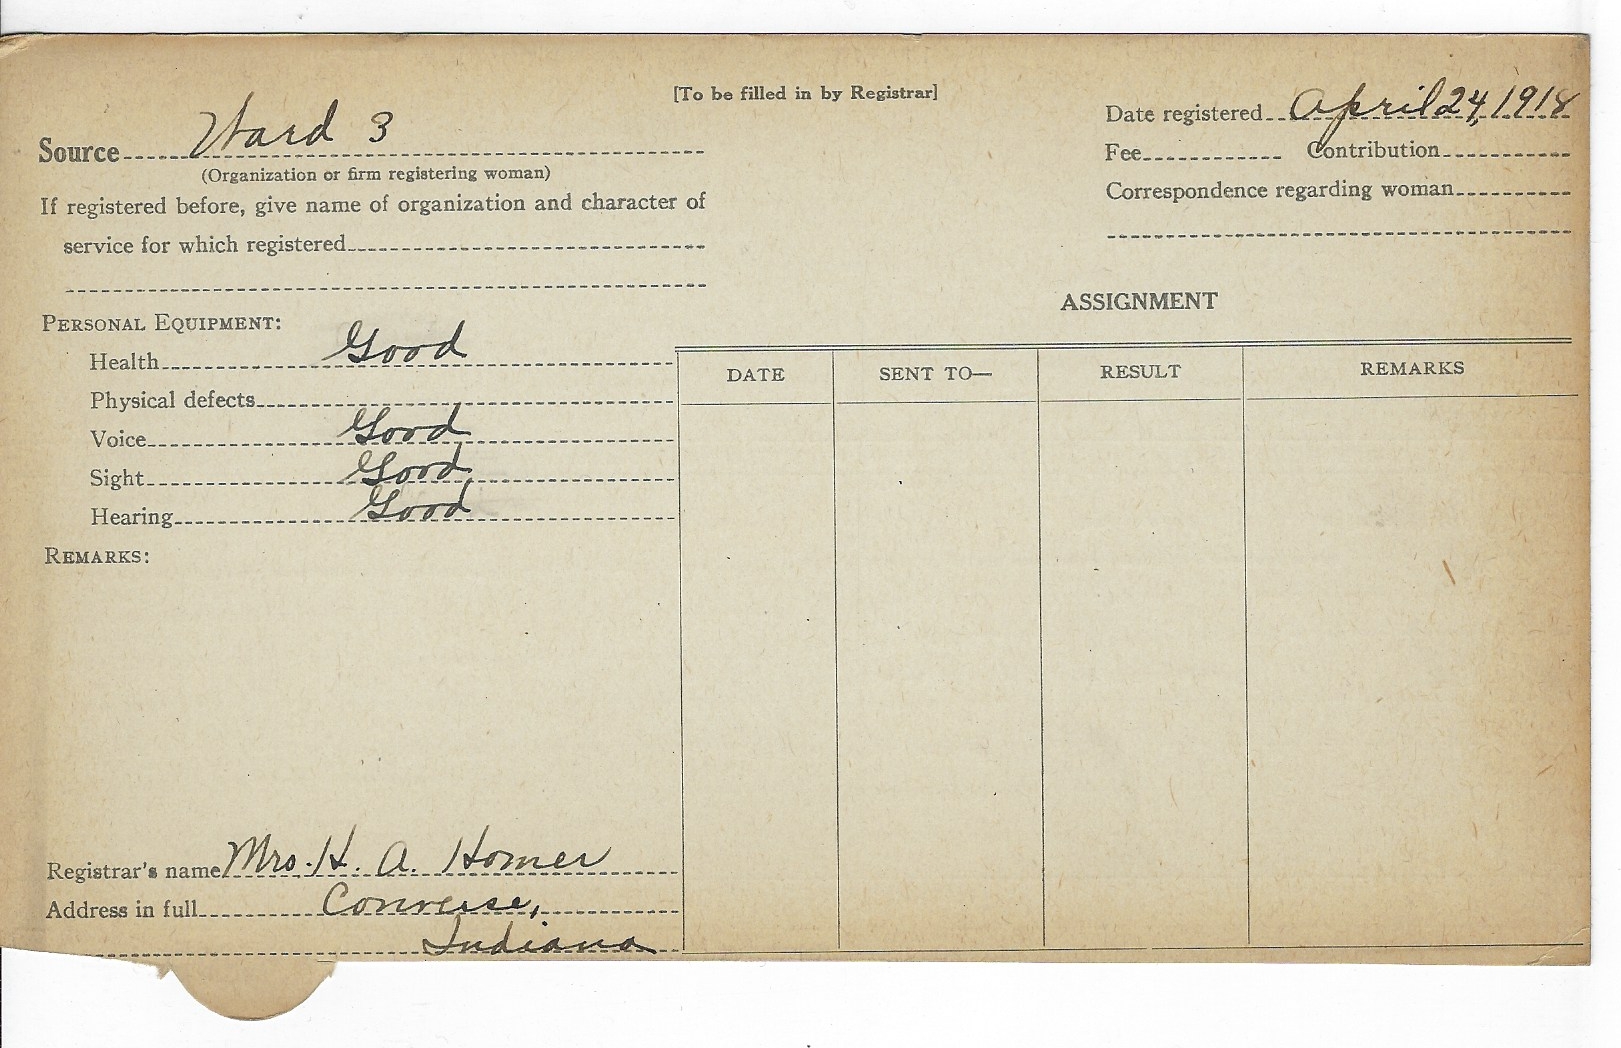 [To be filled in by Registrar]
Source Ward 3
(Organization or firm registering woman)
If registered before, give name of organization and character of
service for which registered
Date registered April 24, 1918
Fee Contribution
Correspondence regarding woman
PERSONAL EQUIPMENT:
Health Good
Physical defects
Voice Good
Sight Good
Hearing Good
REMARKS:
Registrar's name Mrs. H. A. Homer
Address in full Converse,
Indiana
ASSIGNMENT
DATE SENT TO— RESULT REMARKS